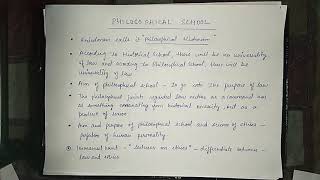 PHILOSOPHICAL SCHOOL
calls it "philosophical
According to Historical School there will be no universality
of law and according to Philosophical School, there will be
universality of law
Aim of philosophical school - to go into the purpose of law
The philosophical jurists regarded law neither as
as something emanating from historical necessity but as a
product of
Aim and purpose of philosophical school and science of ethics -
of human personality
Immanuel Kant - "Lectures on ethics" - differentiate between
law and ethics